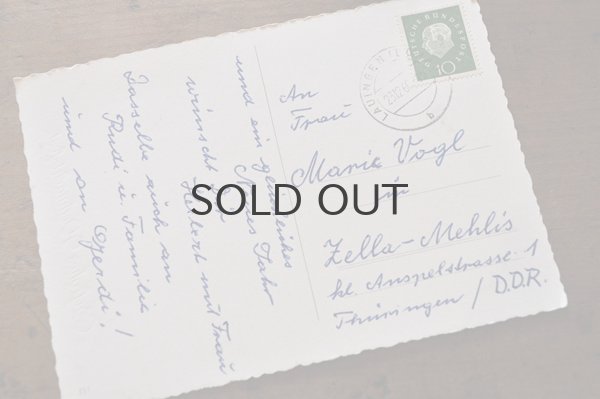 und ein gesundes
Neues Jahr
wünscht Dir
Herbert mit Frau
Dasselbe auch an
Rudi u. Familie
und an Gerdi!
DEUTSCHE BUNDESPOST
10
LAUINGEN
An
Frau
Marie Vogl
in
Zella-Mehlis
kl. Anspelstrasse 1
Thüringen / D.D.R.
SOLD OUT